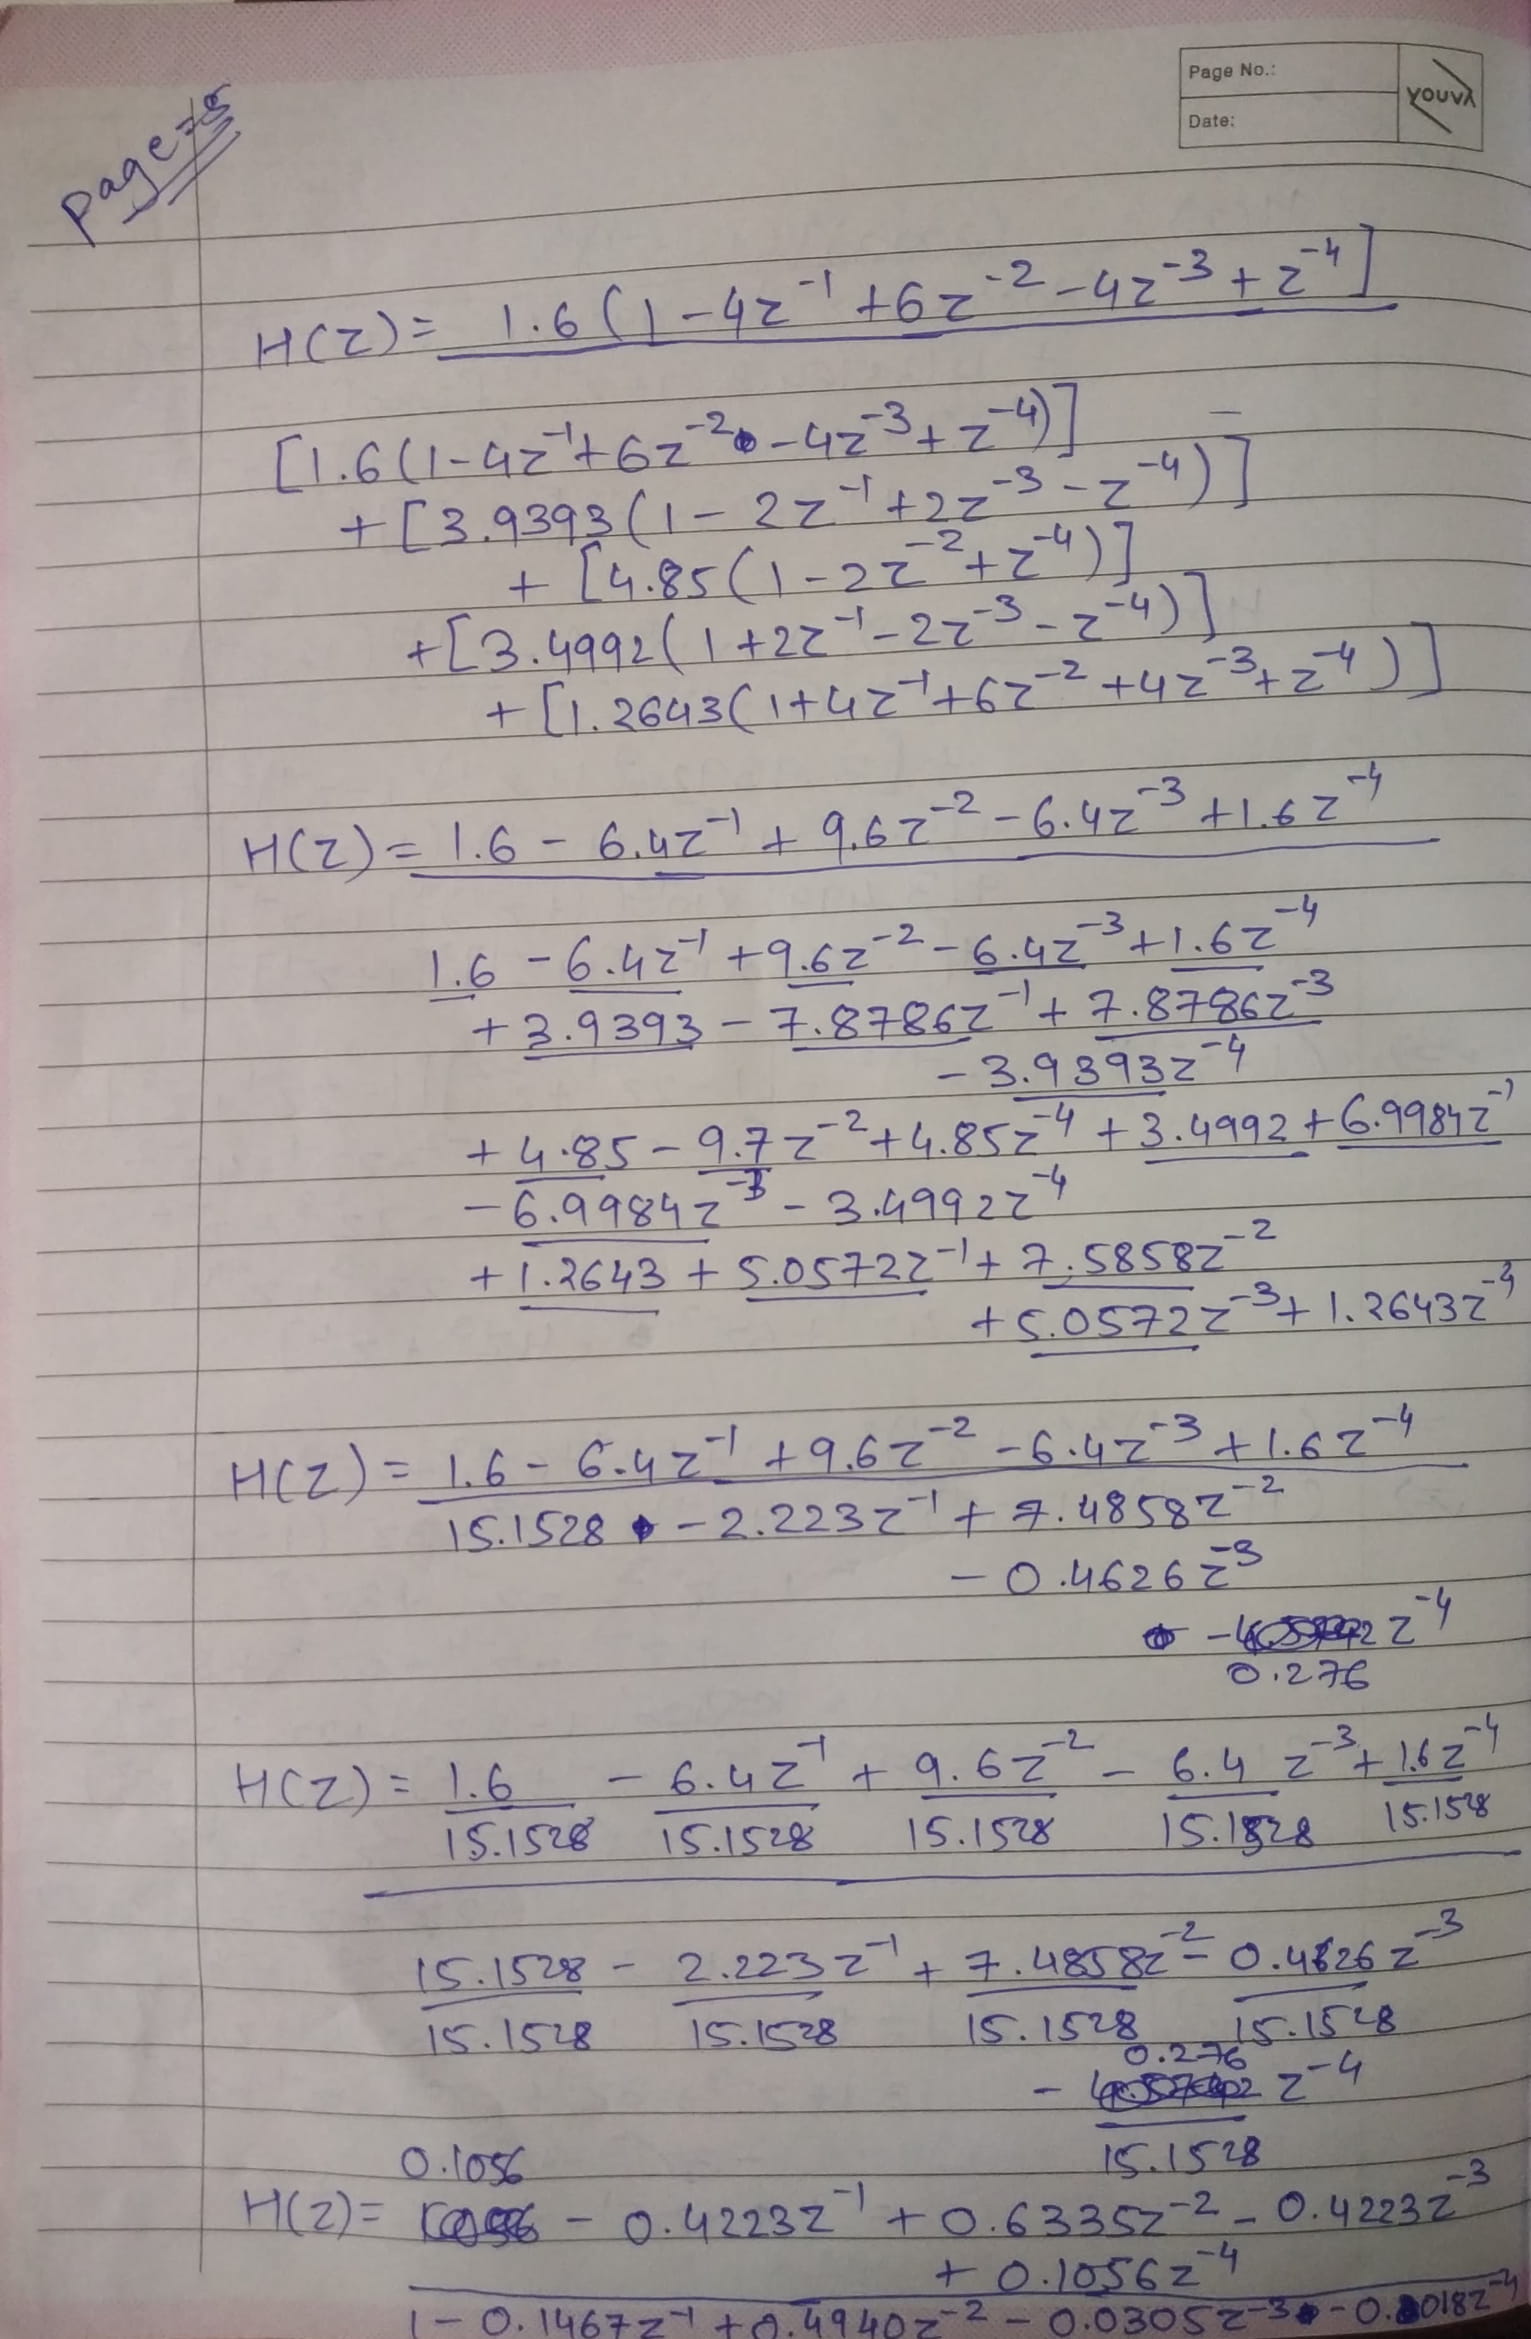 Page No.:
YOUVA
Date:
page=5
H(Z)= 1.6(1-4z⁻¹+6z⁻²-4z⁻³+z⁻⁴]
[1.6(1-4z⁻¹+6z⁻²-4z⁻³+z⁻⁴)]
+[3.9393(1-2z⁻¹+2z⁻³-z⁻⁴)]
+[4.85(1-2z⁻²+z⁻⁴)]
+[3.4992(1+2z⁻¹-2z⁻³-z⁻⁴)]
+[1.2643(1+4z⁻¹+6z⁻²+4z⁻³+z⁻⁴)]
H(Z)= 1.6-6.4z⁻¹+9.6z⁻²-6.4z⁻³+1.6z⁻⁴
1.6-6.4z⁻¹+9.6z⁻²-6.4z⁻³+1.6z⁻⁴
+3.9393-7.8786z⁻¹+7.8786z⁻³
-3.9393z⁻⁴
+4.85-9.7z⁻²+4.85z⁻⁴+3.4992+6.9984z⁻¹
-6.9984z⁻³-3.4992z⁻⁴
+1.2643+5.0572z⁻¹+7.5858z⁻²
+5.0572z⁻³+1.2643z⁻⁴
H(Z)= 1.6-6.4z⁻¹+9.6z⁻²-6.4z⁻³+1.6z⁻⁴
15.1528-2.223z⁻¹+7.4858z⁻²
-0.4626z⁻³
- z⁻⁴
0.276
H(Z)= 1.6 - 6.4z⁻¹ + 9.6z⁻² - 6.4 z⁻³ + 1.6z⁻⁴
15.1528 15.1528 15.1528 15.1528 15.1528
15.1528 - 2.223z⁻¹ + 7.4858z⁻² - 0.4626z⁻³
15.1528 15.1528 15.1528 15.1528
0.276
- z⁻⁴
15.1528
0.1056
H(Z)= - 0.4223z⁻¹+0.6335z⁻²-0.4223z⁻³
+0.1056z⁻⁴
1-0.1467z⁻¹+0.4940z⁻²-0.0305z⁻³-0.018z⁻⁴